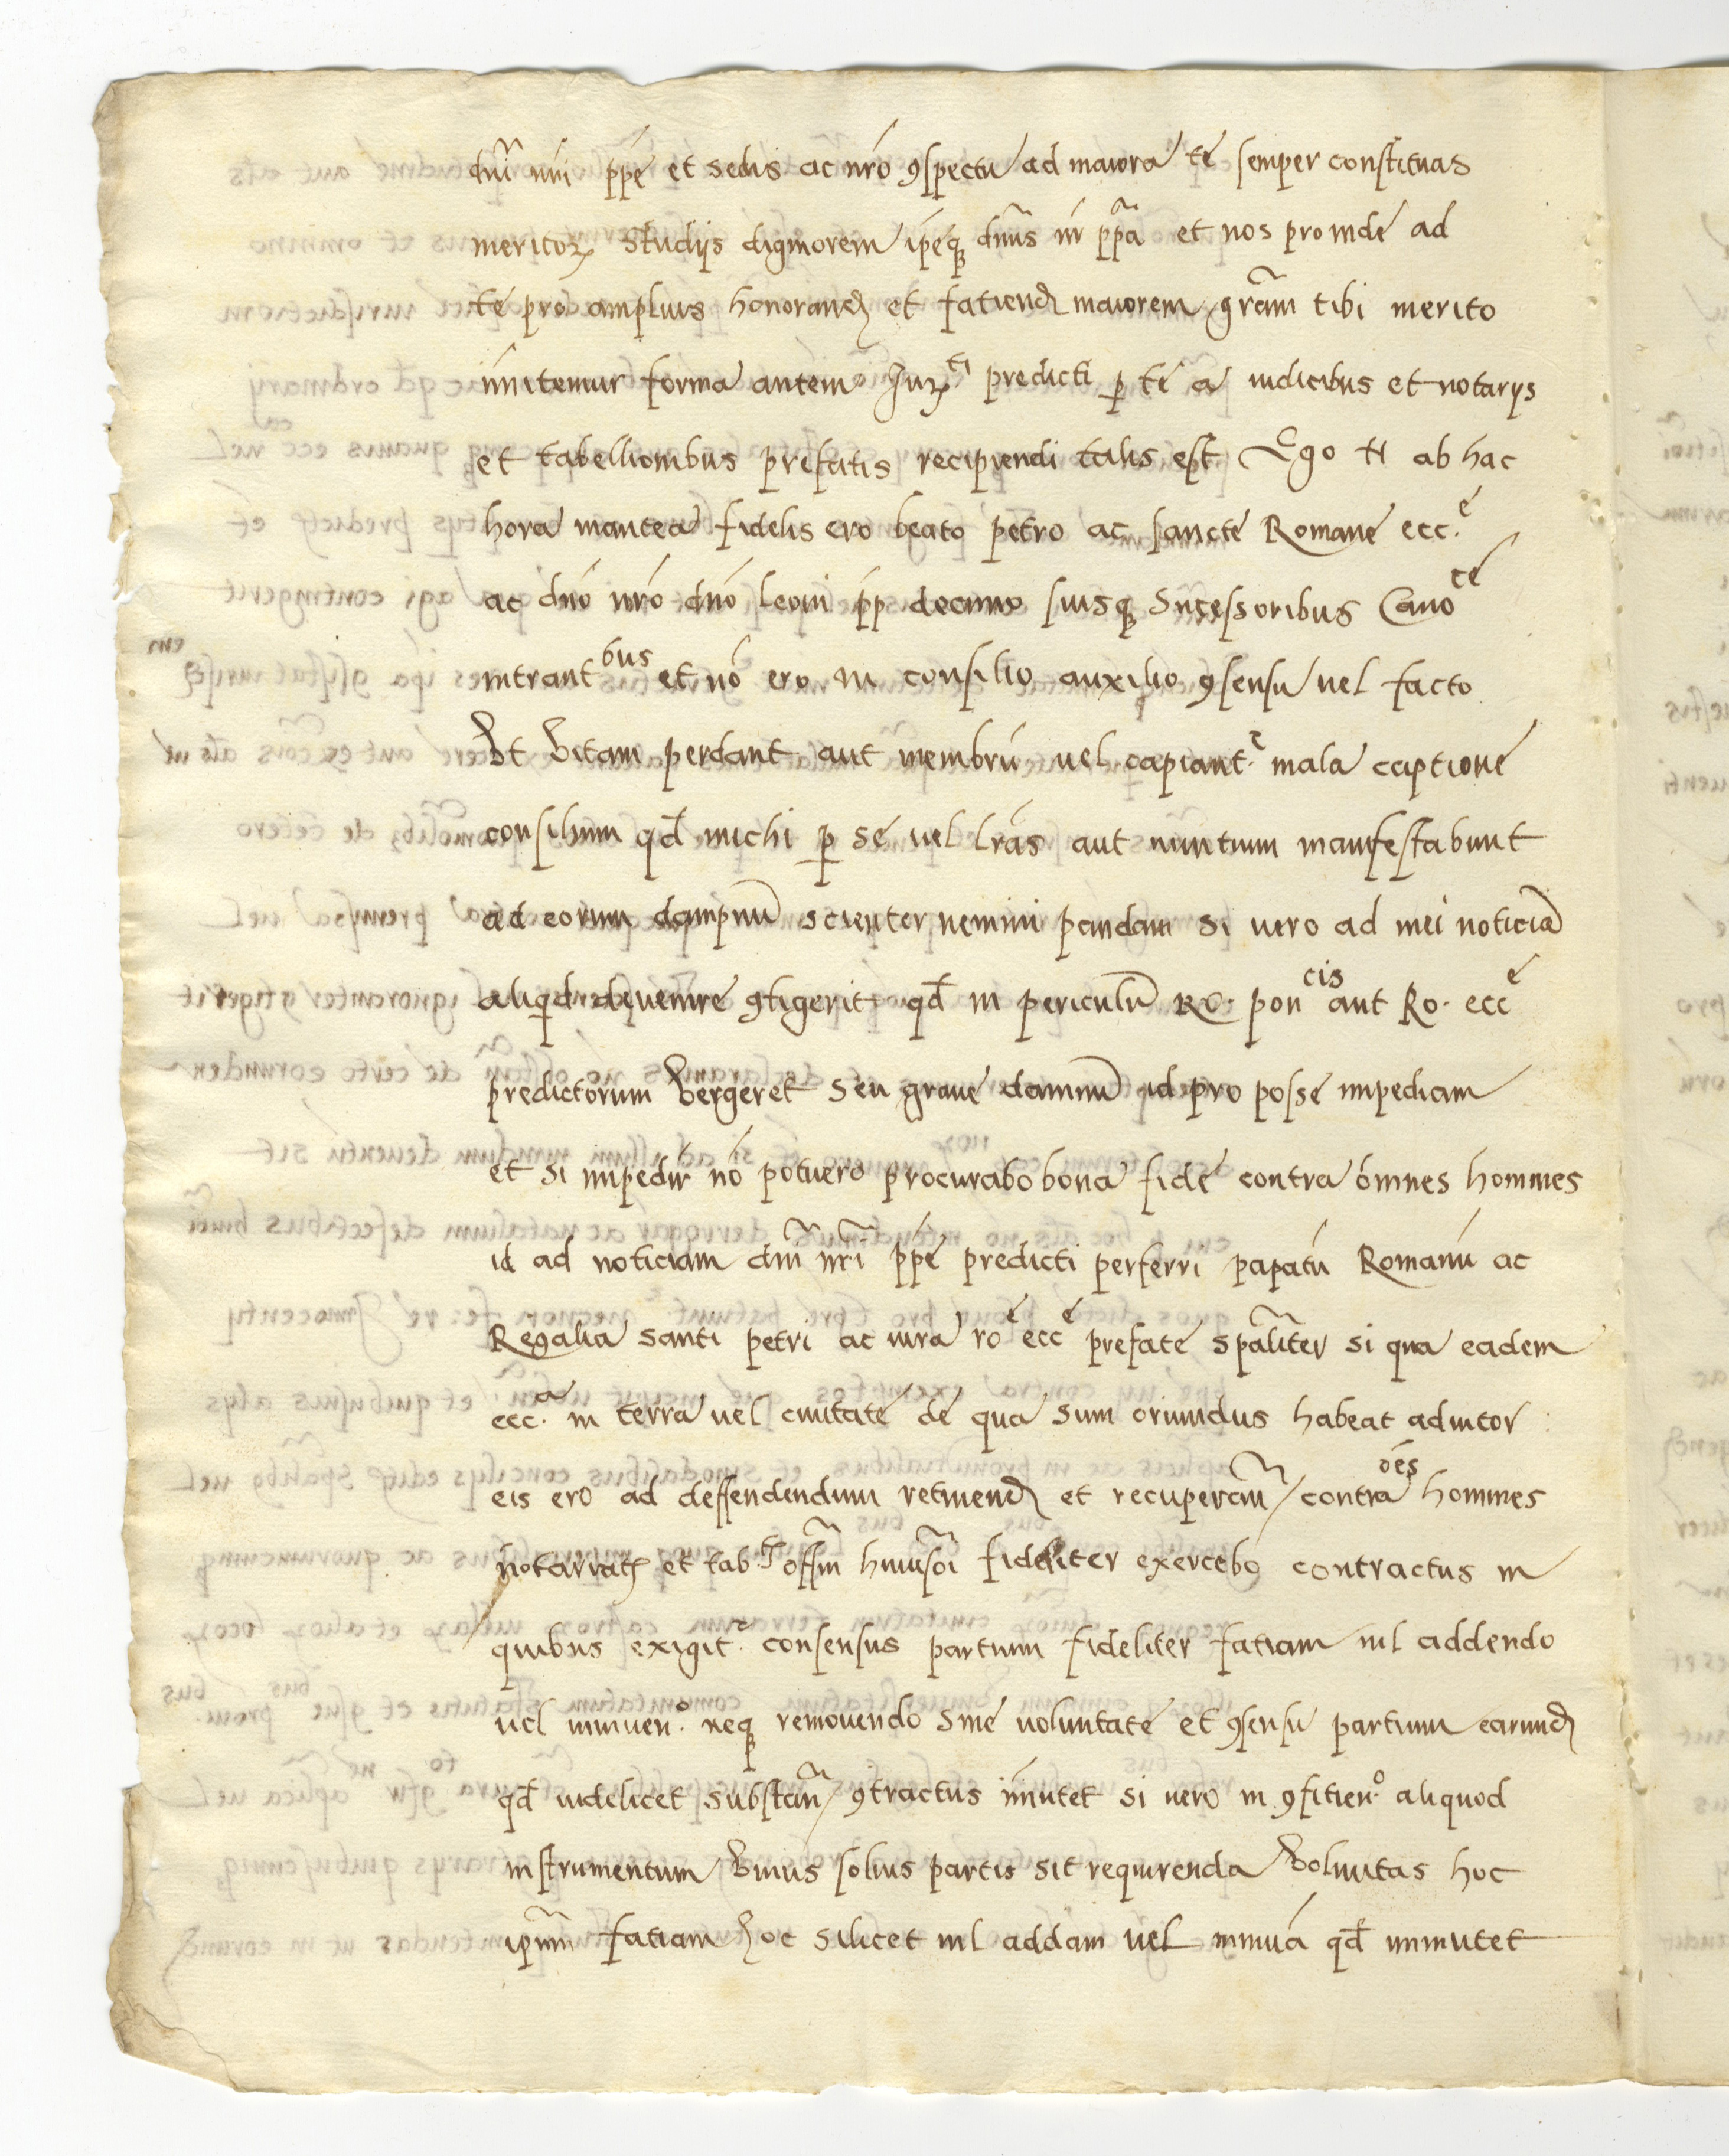 dñi nr̃i ppe et sedis ac nrõ ꝯspectu ad maiora te semper constituas
meritoꝝ studijs digniorem ipeqꝫ dñus nr̃ ppa et nos proinde ad
te pro amplius honorand et fatiend maiorem grãm tibi merito
inuitemur forma autem Jurᵗⁱ predicti ꝑ te a iudicibus et notarijs
et tabellionibus prefatis recipiendi talis est Ego N ab hac
hora inantea fidelis ero beato petro ac sancte Romane ecc.ᵉ
ac dnõ nrõ dnõ leoni pp decimo suisqꝫ Sucessoribus Canoᶜᵉ
intrantᵇᵘˢ et nõ ero in consilio auxilio ꝯsensu uel facto
Vt Vitam perdant aut membrũ uel capiant.ᶜ mala captione
consilium qđ michi ꝑ se uel lrãs aut nuntium manifestabunt
ad eorum dampnũ scienter nemini pandam si uero ad mei noticiã
aliqd deuenire ꝯtigerit qđ in periculũ Ro. ponᶜⁱˢ aut Ro. eccᵉ
predictorum Vergeret seu graue damnũ id pro posse impediam
et si impedir̃ nõ potuero procurabo bona fide contra omnes homines
id ad noticiam dñi nr̃i ppe predicti perferri papatũ Romanũ ac
Regalia santi petri ac iura roᵉ eccᵉ prefate spãliter si qua eadem
ecc.ᵃ in terra uel ciuitate de qua sum oriundus habeat adiutor
eis ero ad deffendendum retinend et recuperañ contra ões homines
notariat et tab offm̃ huiusõi fideliter exercebo contractus in
quibus exigit.ᶜ consensus partium fideliter fatiam nil addendo
uel minuen.ᵒ neqꝫ remouendo sine uoluntate et ꝯsensu partium earund
qđ uidelicet substañ ꝯtractus imutet si uero in ꝯfitien.ᵒ aliquod
instrumentum Vnius solius partis sit requirenda Voluntas hoc
ipsum fatiam hoc silicet nil addam uel minuã qđ immutet